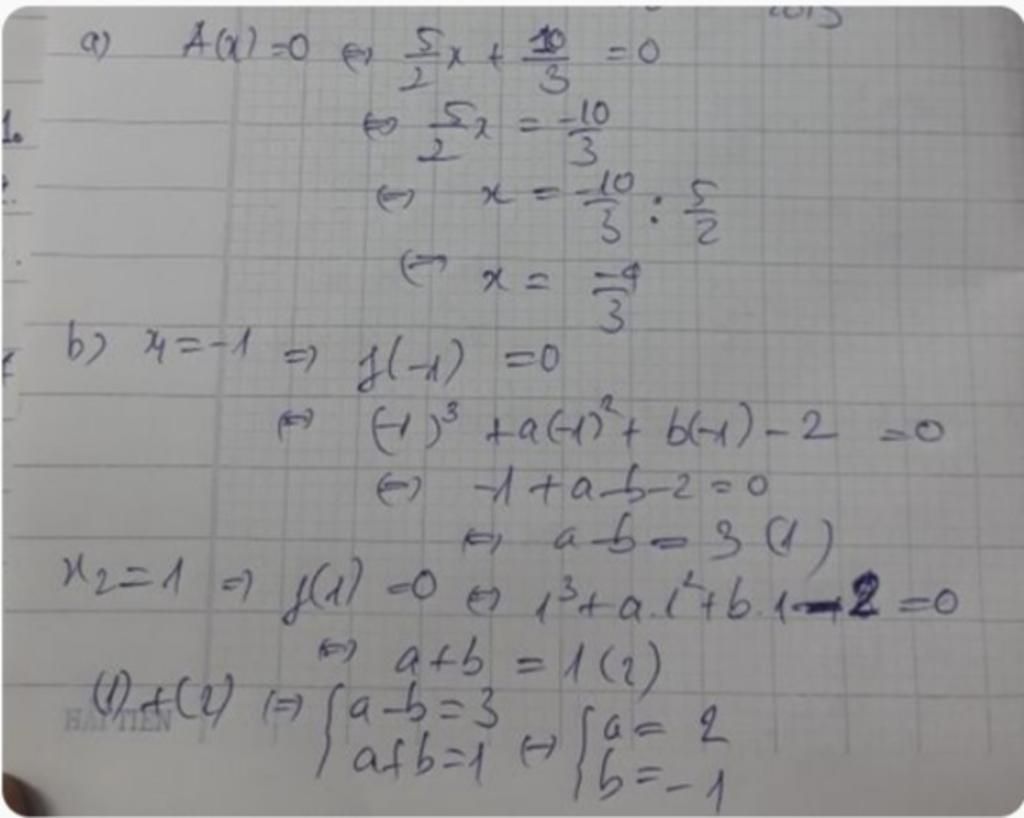 2015
a) A(x) = 0 ⇔ 5/2 x + 10/3 = 0
⇔ 5/2 x = -10/3
⇔ x = -10/3 : 5/2
⇔ x = -4/3
b) x₁ = -1 ⇒ f(-1) = 0
⇔ (-1)³ + a(-1)² + b(-1) - 2 = 0
⇔ -1 + a - b - 2 = 0
⇔ a - b = 3 (1)
x₂ = 1 ⇒ f(1) = 0 ⇔ 1³ + a.1² + b.1 - 2 = 0
⇔ a + b = 1 (2)
(1) + (2) ⇒ { a - b = 3 ⇔ { a = 2
a + b = 1 b = -1
HẢI TIẾN